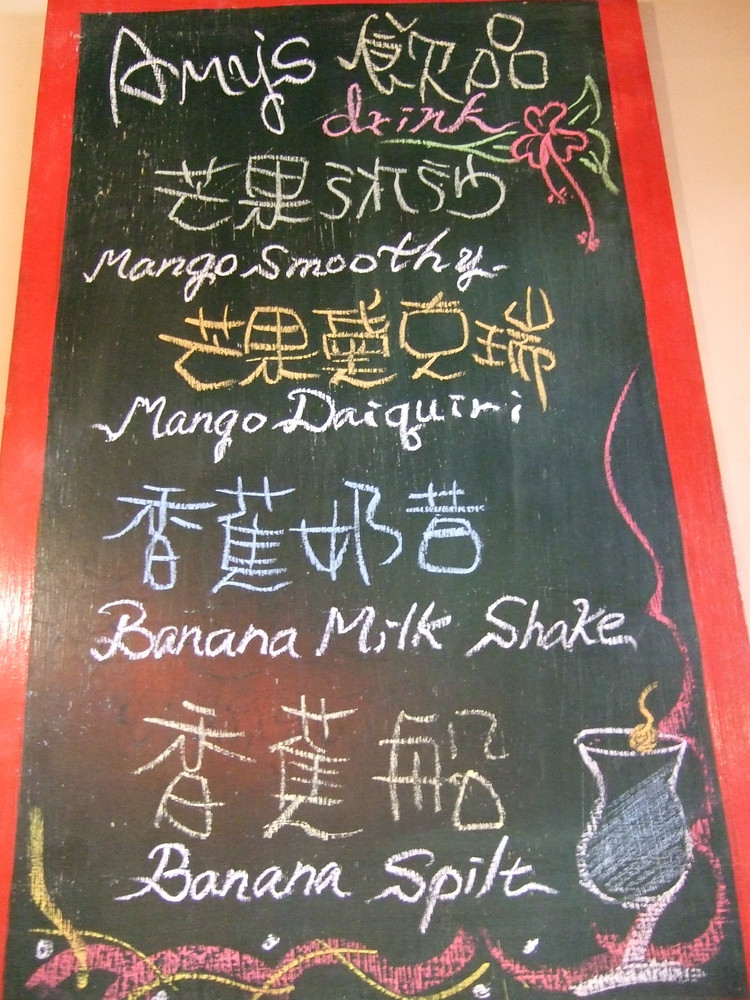 Amy's 飲品
drink
芒果冰沙
Mango Smoothy.
芒果克瑞
Mango Daiquiri
香蕉奶昔
Banana Milk Shake
香蕉船
Banana Spilt